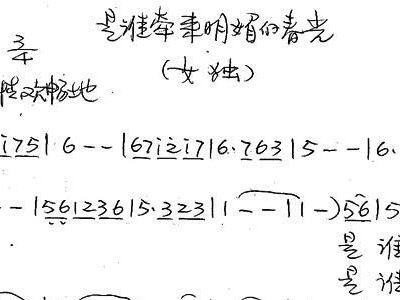 是谁牵来明媚的春光
3/4
(女独)
情欢畅地
i75|6--|67i2i7|6.763|5--|6.
--|561236|5.323|1--|1-)56|5
是 谁
是 谁